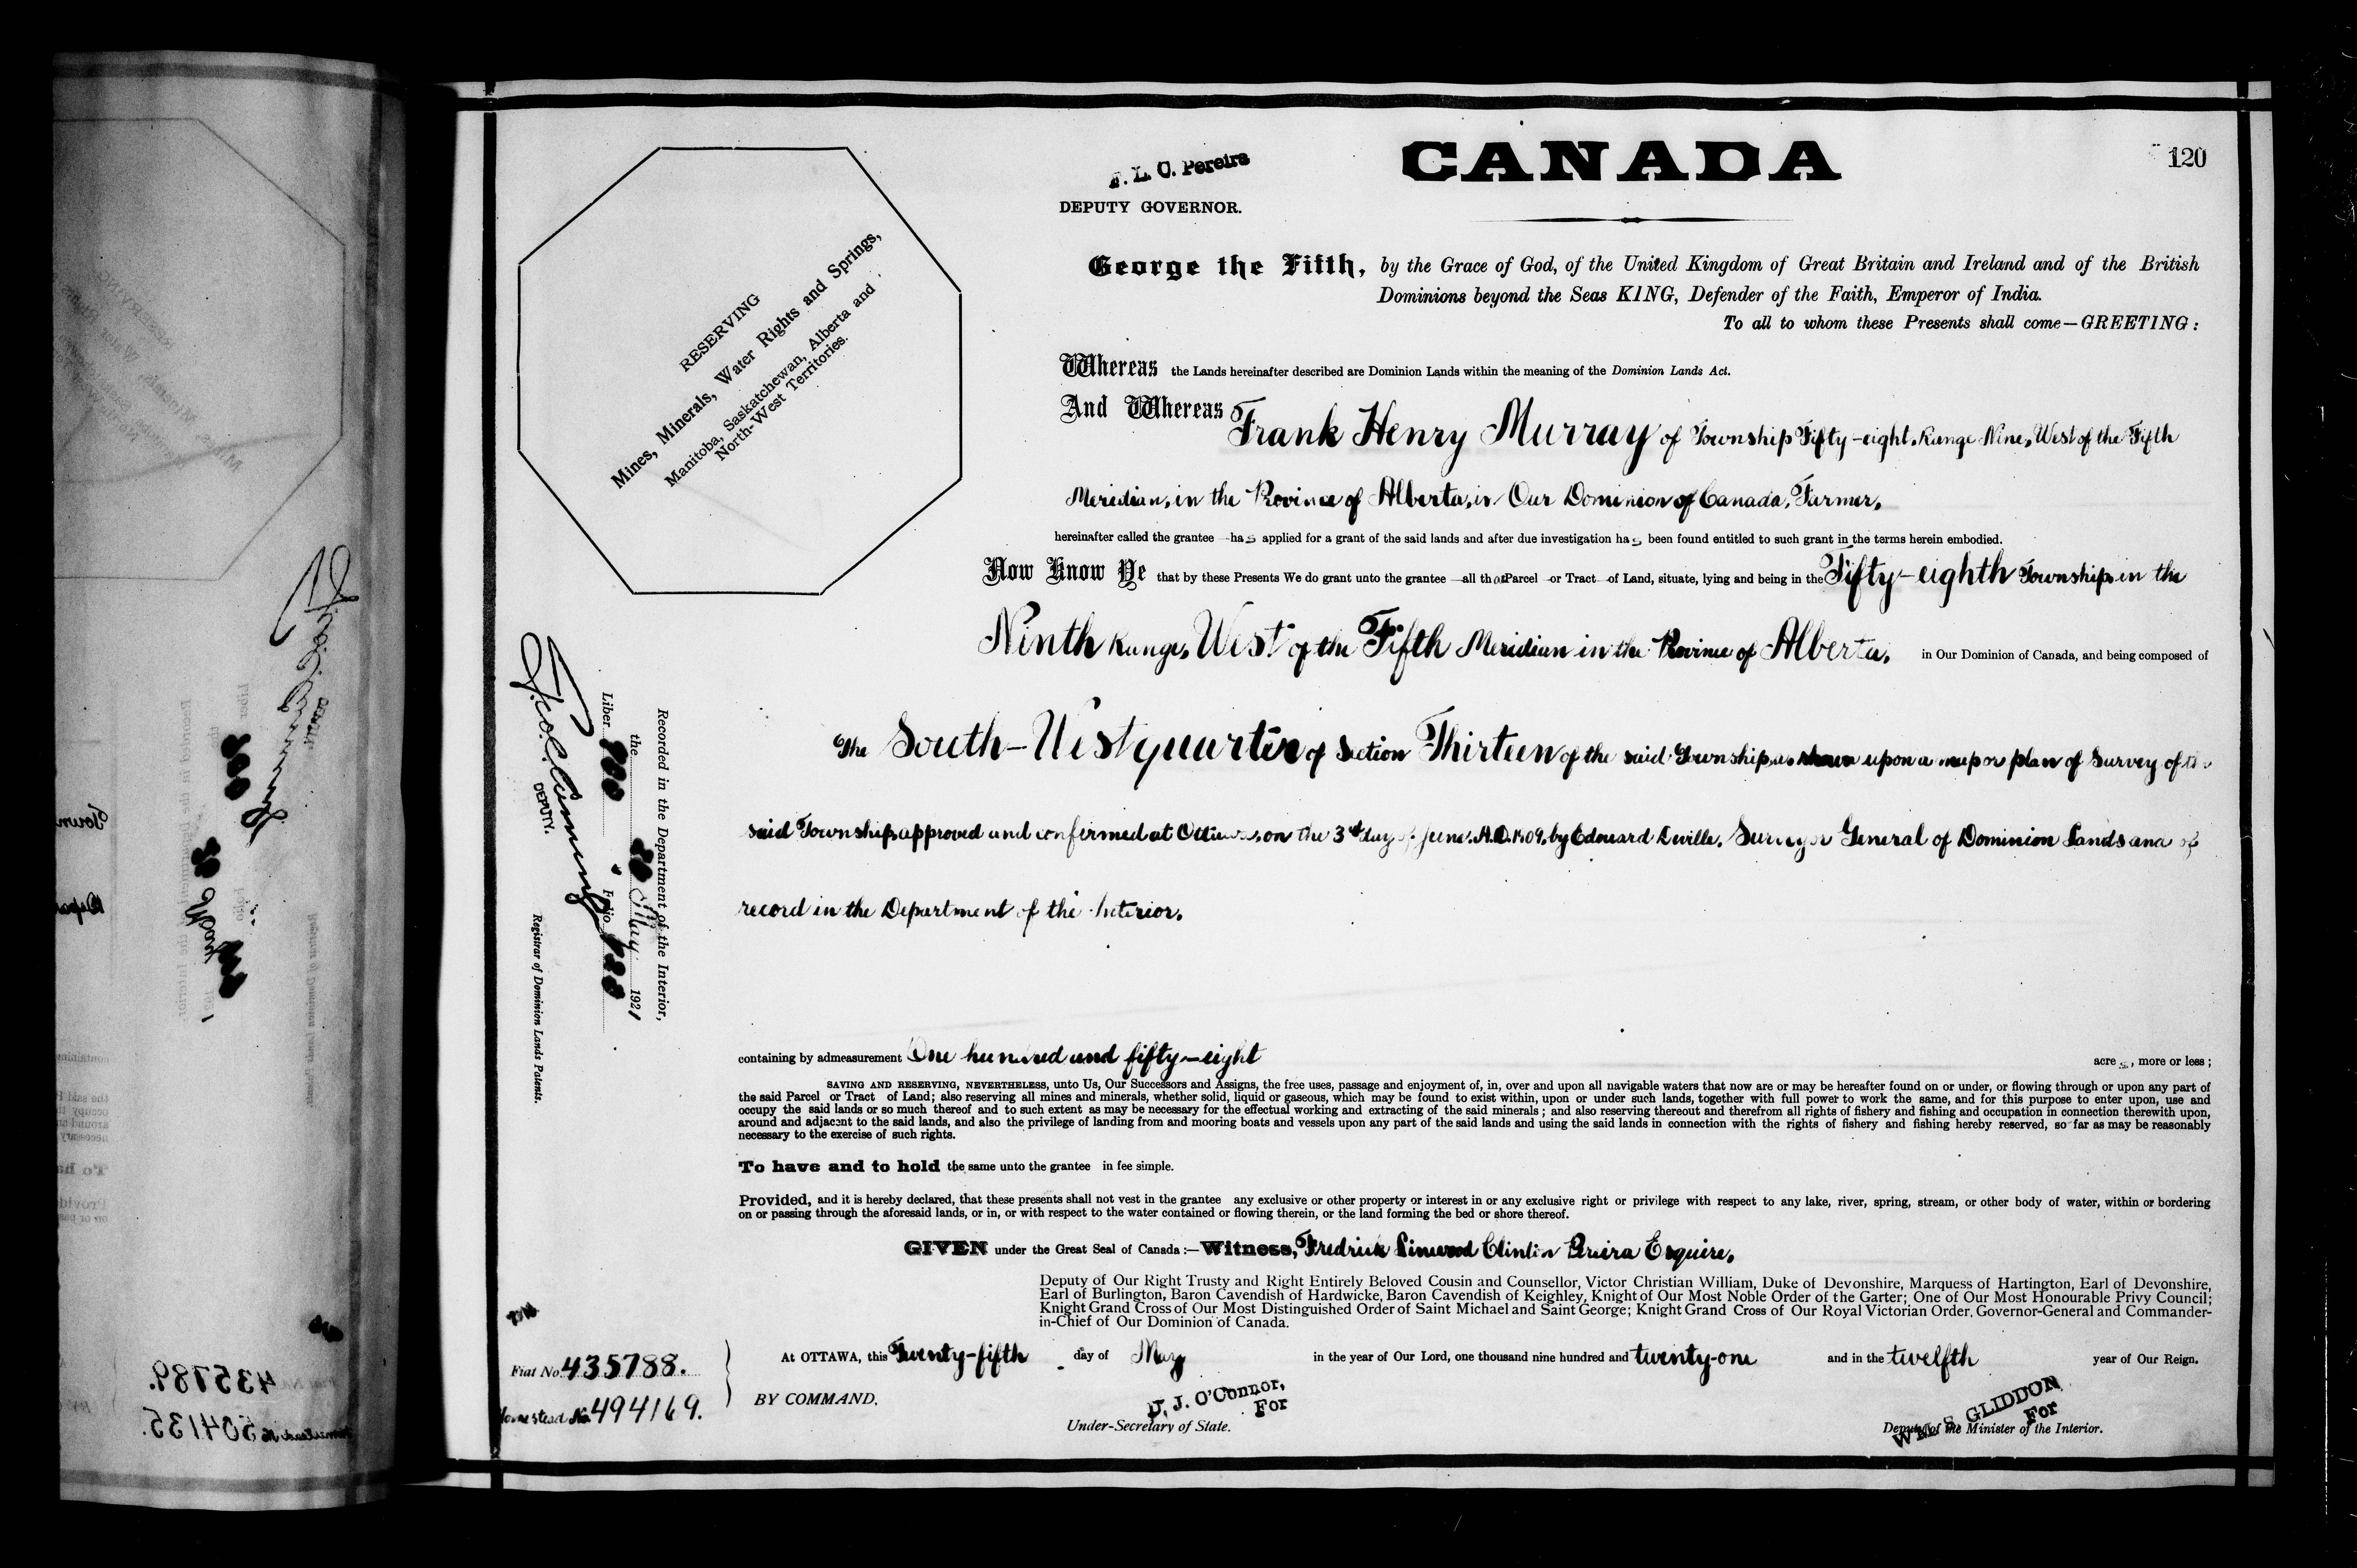 CANADA
120
F. L. C. Pereira
DEPUTY GOVERNOR.
RESERVING
Mines, Minerals, Water Rights and Springs,
Manitoba, Saskatchewan, Alberta and
North-West Territories.
George the Fifth, by the Grace of God, of the United Kingdom of Great Britain and Ireland and of the British
Dominions beyond the Seas KING, Defender of the Faith, Emperor of India.
To all to whom these Presents shall come—GREETING:
Whereas the Lands hereinafter described are Dominion Lands within the meaning of the Dominion Lands Act.
And Whereas Frank Henry Murray of Township Fifty-eight, Range Nine, West of the Fifth
Meridian, in the Province of Alberta, in Our Dominion of Canada, Farmer,
hereinafter called the grantee has applied for a grant of the said lands and after due investigation has been found entitled to such grant in the terms herein embodied.
Now Know Ye that by these Presents We do grant unto the grantee —all that Parcel or Tract of Land, situate, lying and being in the Fifty-eighth Township, in the
Ninth Range, West of the Fifth Meridian in the Province of Alberta, in Our Dominion of Canada, and being composed of
The South-West quarter of Section Thirteen of the said Township, as shown upon a map or plan of Survey of the
said Township, approved and confirmed at Ottawa, on the 3rd day of June, A.D. 1909, by Edouard Deville, Surveyor General of Dominion Lands and of
record in the Department of the Interior.
Recorded in the Department of the Interior,
the May 1921
Liber Folio
DEPUTY.
Registrar of Dominion Lands Patents.
containing by admeasurement One hundred and fifty-eight acres, more or less;
SAVING AND RESERVING, NEVERTHELESS, unto Us, Our Successors and Assigns, the free uses, passage and enjoyment of, in, over and upon all navigable waters that now are or may be hereafter found on or under, or flowing through or upon any part of
the said Parcel or Tract of Land; also reserving all mines and minerals, whether solid, liquid or gaseous, which may be found to exist within, upon or under such lands, together with full power to work the same, and for this purpose to enter upon, use and
occupy the said lands or so much thereof and to such extent as may be necessary for the effectual working and extracting of the said minerals; and also reserving thereout and therefrom all rights of fishery and fishing and occupation in connection therewith upon,
around and adjacent to the said lands, and also the privilege of landing from and mooring boats and vessels upon any part of the said lands and using the said lands in connection with the rights of fishery and fishing hereby reserved, so far as may be reasonably
necessary to the exercise of such rights.
To have and to hold the same unto the grantee in fee simple.
Provided, and it is hereby declared, that these presents shall not vest in the grantee any exclusive or other property or interest in or any exclusive right or privilege with respect to any lake, river, spring, stream, or other body of water, within or bordering
on or passing through the aforesaid lands, or in, or with respect to the water contained or flowing therein, or the land forming the bed or shore thereof.
GIVEN under the Great Seal of Canada:—Witness, Fredrick Clinton Pereira Esquire,
Deputy of Our Right Trusty and Right Entirely Beloved Cousin and Counsellor, Victor Christian William, Duke of Devonshire, Marquess of Hartington, Earl of Devonshire,
Earl of Burlington, Baron Cavendish of Hardwicke, Baron Cavendish of Keighley, Knight of Our Most Noble Order of the Garter; One of Our Most Honourable Privy Council;
Knight Grand Cross of Our Most Distinguished Order of Saint Michael and Saint George; Knight Grand Cross of Our Royal Victorian Order, Governor-General and Commander-
in-Chief of Our Dominion of Canada.
At OTTAWA, this Twenty-fifth day of May in the year of Our Lord, one thousand nine hundred and twenty-one and in the twelfth year of Our Reign.
Fiat No. 435788.
Homestead No. 494169.
BY COMMAND,
D. J. O'Connor,
For
Under-Secretary of State.
WM. S. GLIDDON
For
Deputy of the Minister of the Interior.
435789.
504135.